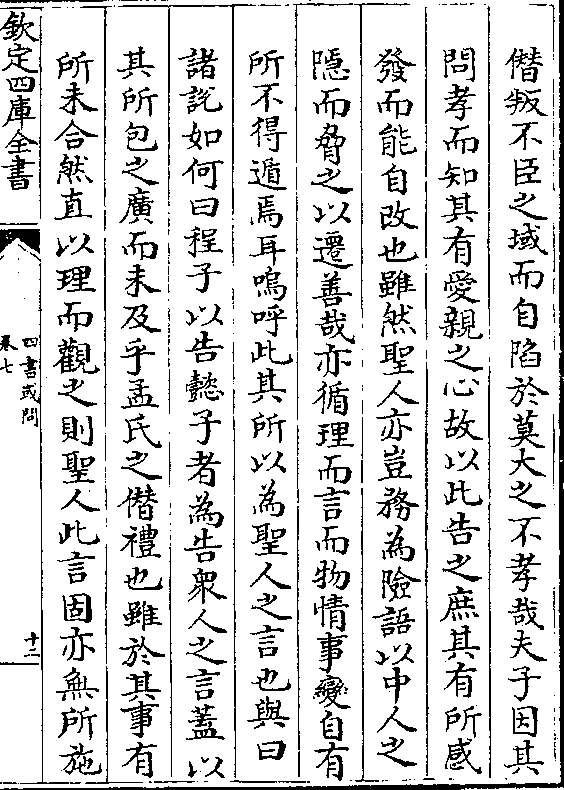 僭叛不臣之域而自陷於莫大之不孝哉夫子因其
問孝而知其有愛親之心故以此告之庶其有所感
發而能自改也雖然聖人亦豈務為險語以中人之
隠而脅之以遷善哉亦循理而言而物情事變自有
所不得遁焉耳嗚呼此其所以為聖人之言也與曰
諸説如何曰程子以告懿子者為告衆人之言蓋以
其所包之廣而未及乎孟氏之僭禮也雖於其事有
所未合然直以理而觀之則聖人此言固亦無所施
欽定四庫全書
四書或問
卷七
十二